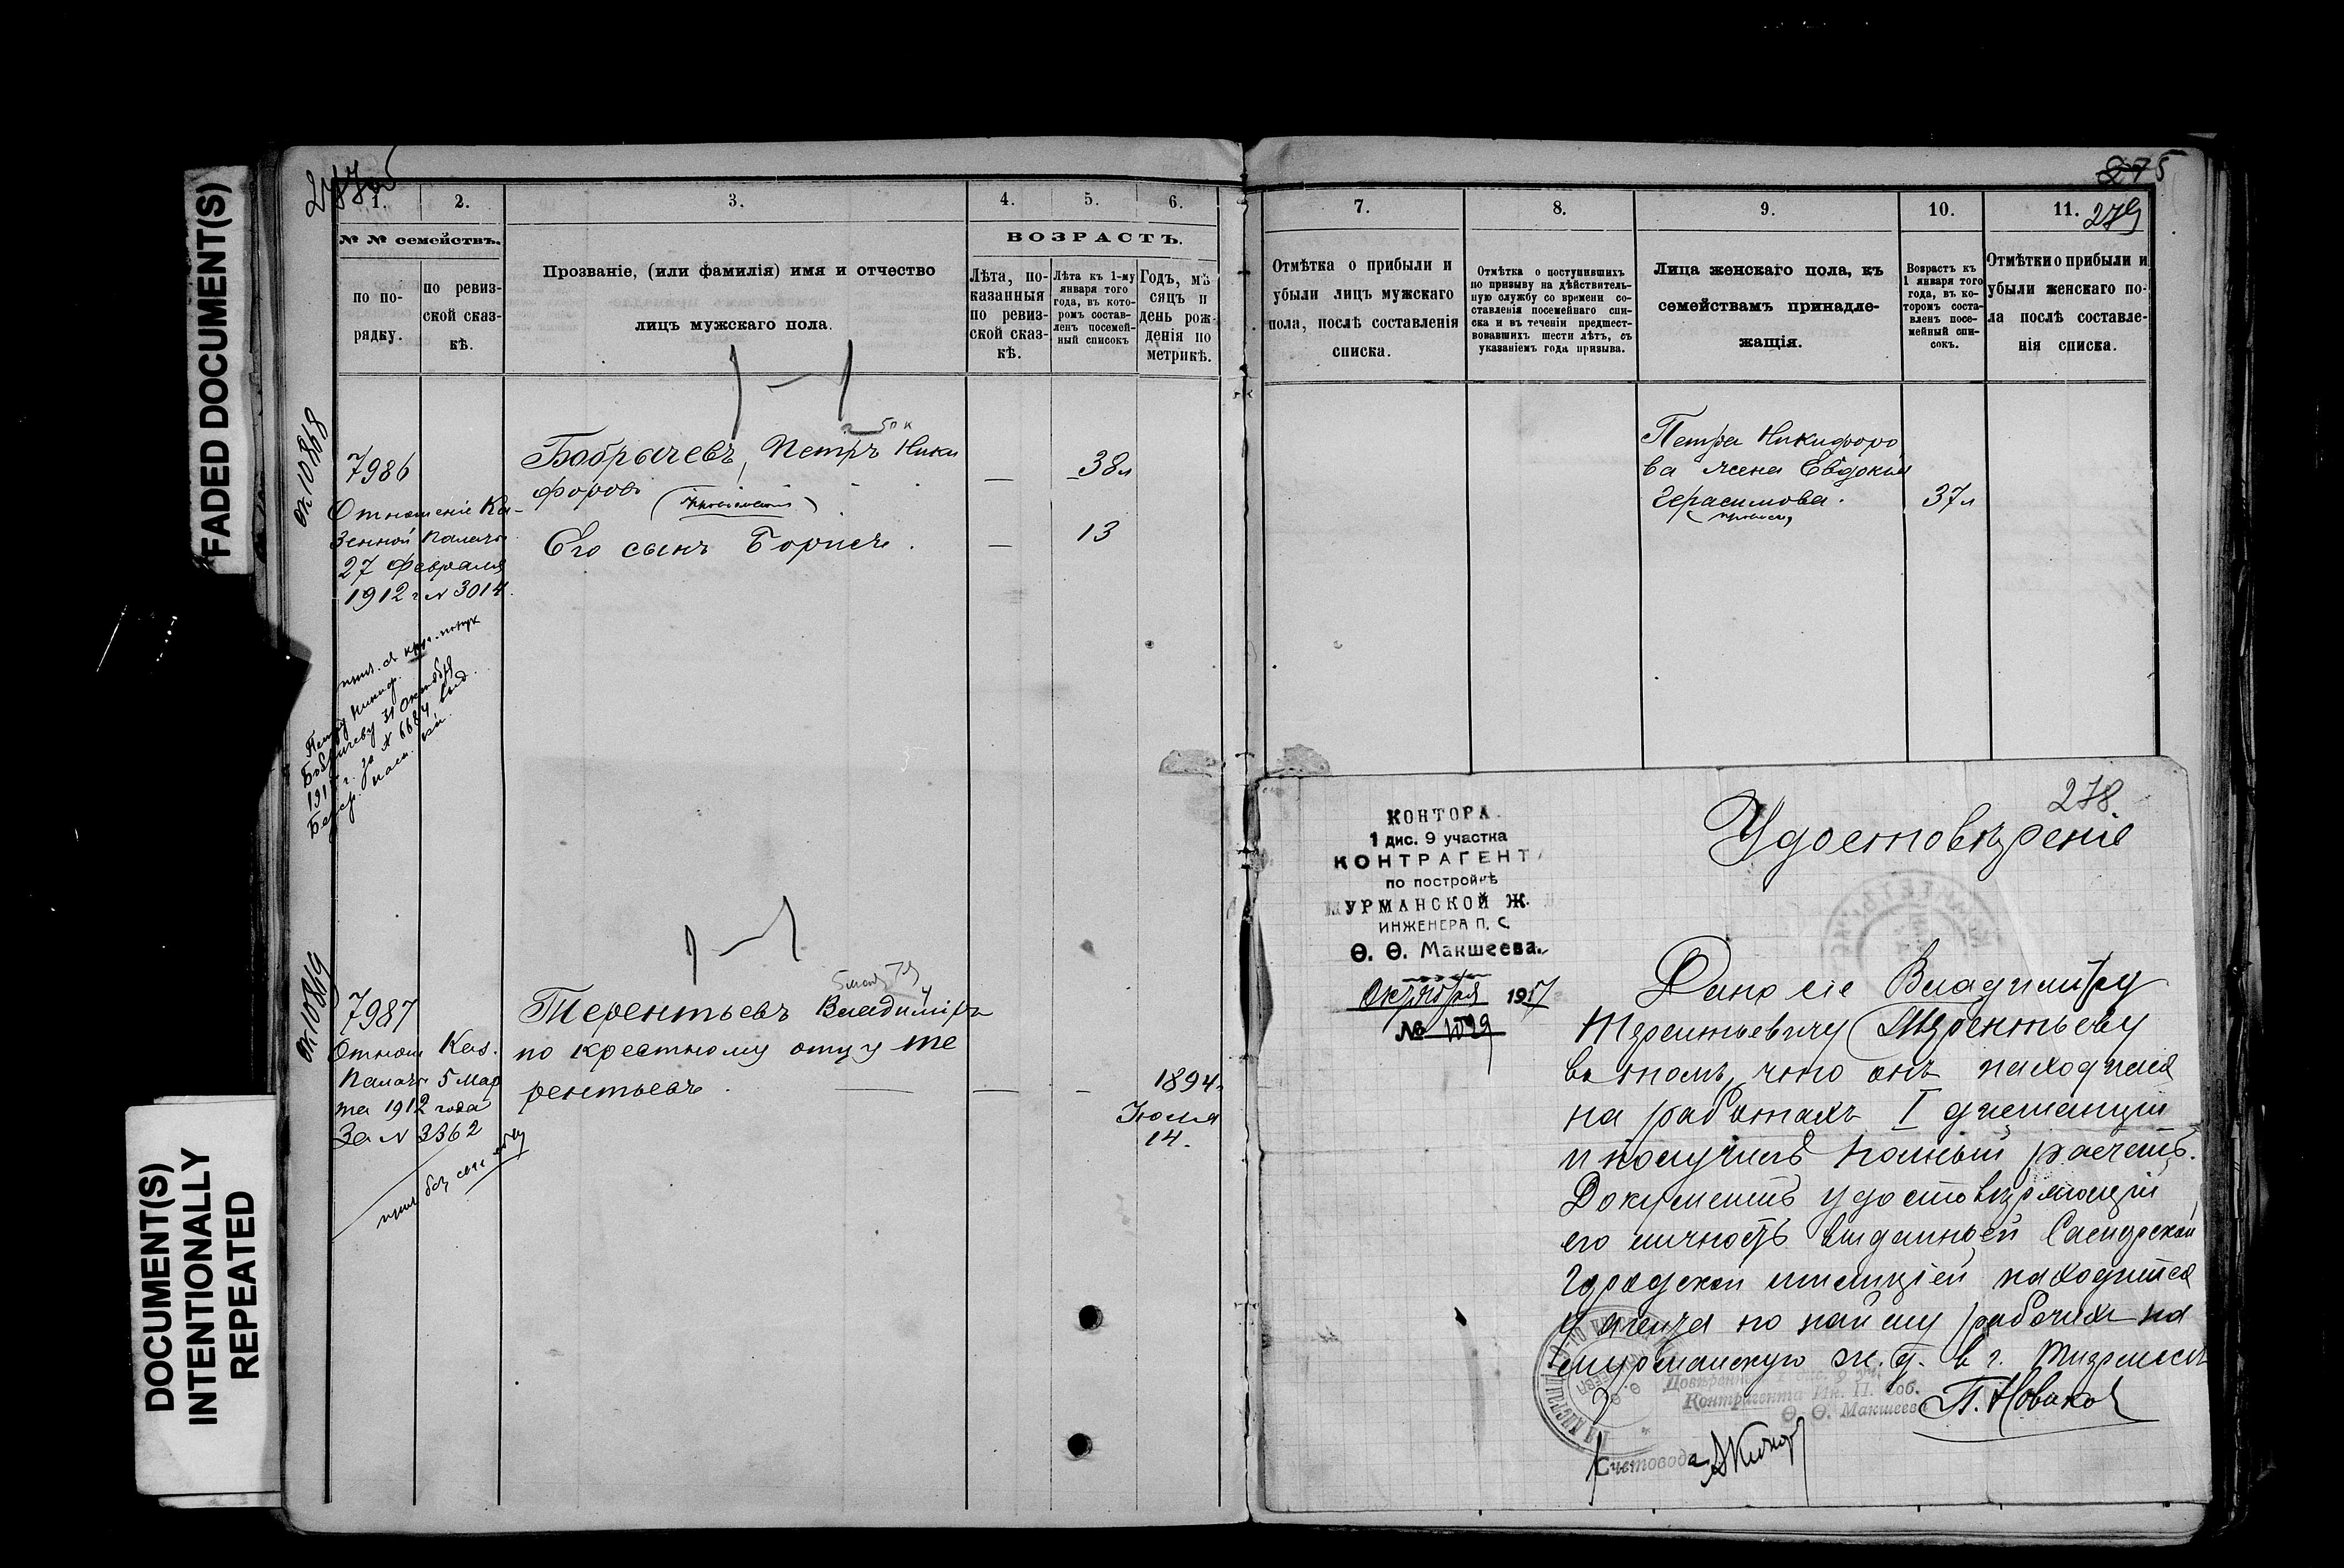 FADED DOCUMENT(S)
DOCUMENT(S)
INTENTIONALLY
REPEATED
277об
1.
2.
3.
4.
5.
6.
№ № семействъ.
ВОЗРАСТЪ.
по по-
рядку.
по ревиз-
ской сказ-
кѣ.
Прозваніе, (или фамилія) имя и отчество
лицъ мужскаго пола.
Лѣта, по-
казанныя
по ревиз-
ской сказ-
кѣ.
Лѣта къ 1-му
января того
года, въ кото-
ромъ состав-
ленъ посемей-
ный списокъ
Годъ, мѣ
сяцъ и
день рож-
денія по
метрикѣ.
10868
7986
Отношеніе Ка-
зенной Палаты
27 Февраля
1912 г № 3014.
Бобрычевъ, Петръ Ники
форовъ
— 38л
Его сынъ Борисъ.
— 13
Петру Никиф.
Бобрычеву 31 Октября
№ 6684 выд.
10869
7987
Отнош Каз.
Палаты 5 Мар
та 1912 года
За № 3362
Терентьевъ Владиміръ
по крестному отцу Те
рентьевъ.
— —
1894 г
Іюля
14.
275
279
7.
8.
9.
10.
11.
Отмѣтка о прибыли и
убыли лицъ мужскаго
пола, послѣ составленія
списка.
Отмѣтка о поступившихъ
по призыву на дѣйствитель-
ную службу со времени со-
ставленія посемейнаго спи-
ска и въ теченіи предшест-
вовавшихъ шести лѣтъ, съ
указаніемъ года призыва.
Лица женскаго пола, къ
семействамъ принадле-
жащія.
Возрастъ къ
1 января того
года, въ ко-
торомъ соста-
вленъ посе-
мейный спи-
сокъ.
Отмѣтки о прибыли и
убыли женскаго по-
ла послѣ составле-
нія списка.
Петра Никифоро
ва жена Евдокія
Герасимова.
37л
278
КОНТОРА
1 дис. 9 участка
КОНТРАГЕНТА
по постройкѣ
МУРМАНСКОЙ Ж.
ИНЖЕНЕРА П. С.
Ѳ. Ѳ. Макшеева.
Октября 1917
№ 1099
Удостовѣреніе
Дано сіе Владиміру
Терентьевичу Терентьеву
въ томъ, что онъ находился
на работахъ I дистанціи
и получилъ полный расчетъ.
Документъ удостовѣряющій
его личность выданный Самарской
Городской милиціей находится
у агента по найму рабочихъ на
Мурманскую ж. д. в г.
Довѣренный 1 дис. 9 уч.
Контрагента Ин. П. Соб.
Ѳ. Ѳ. Макшеева
П. Новиков
Счетоводъ